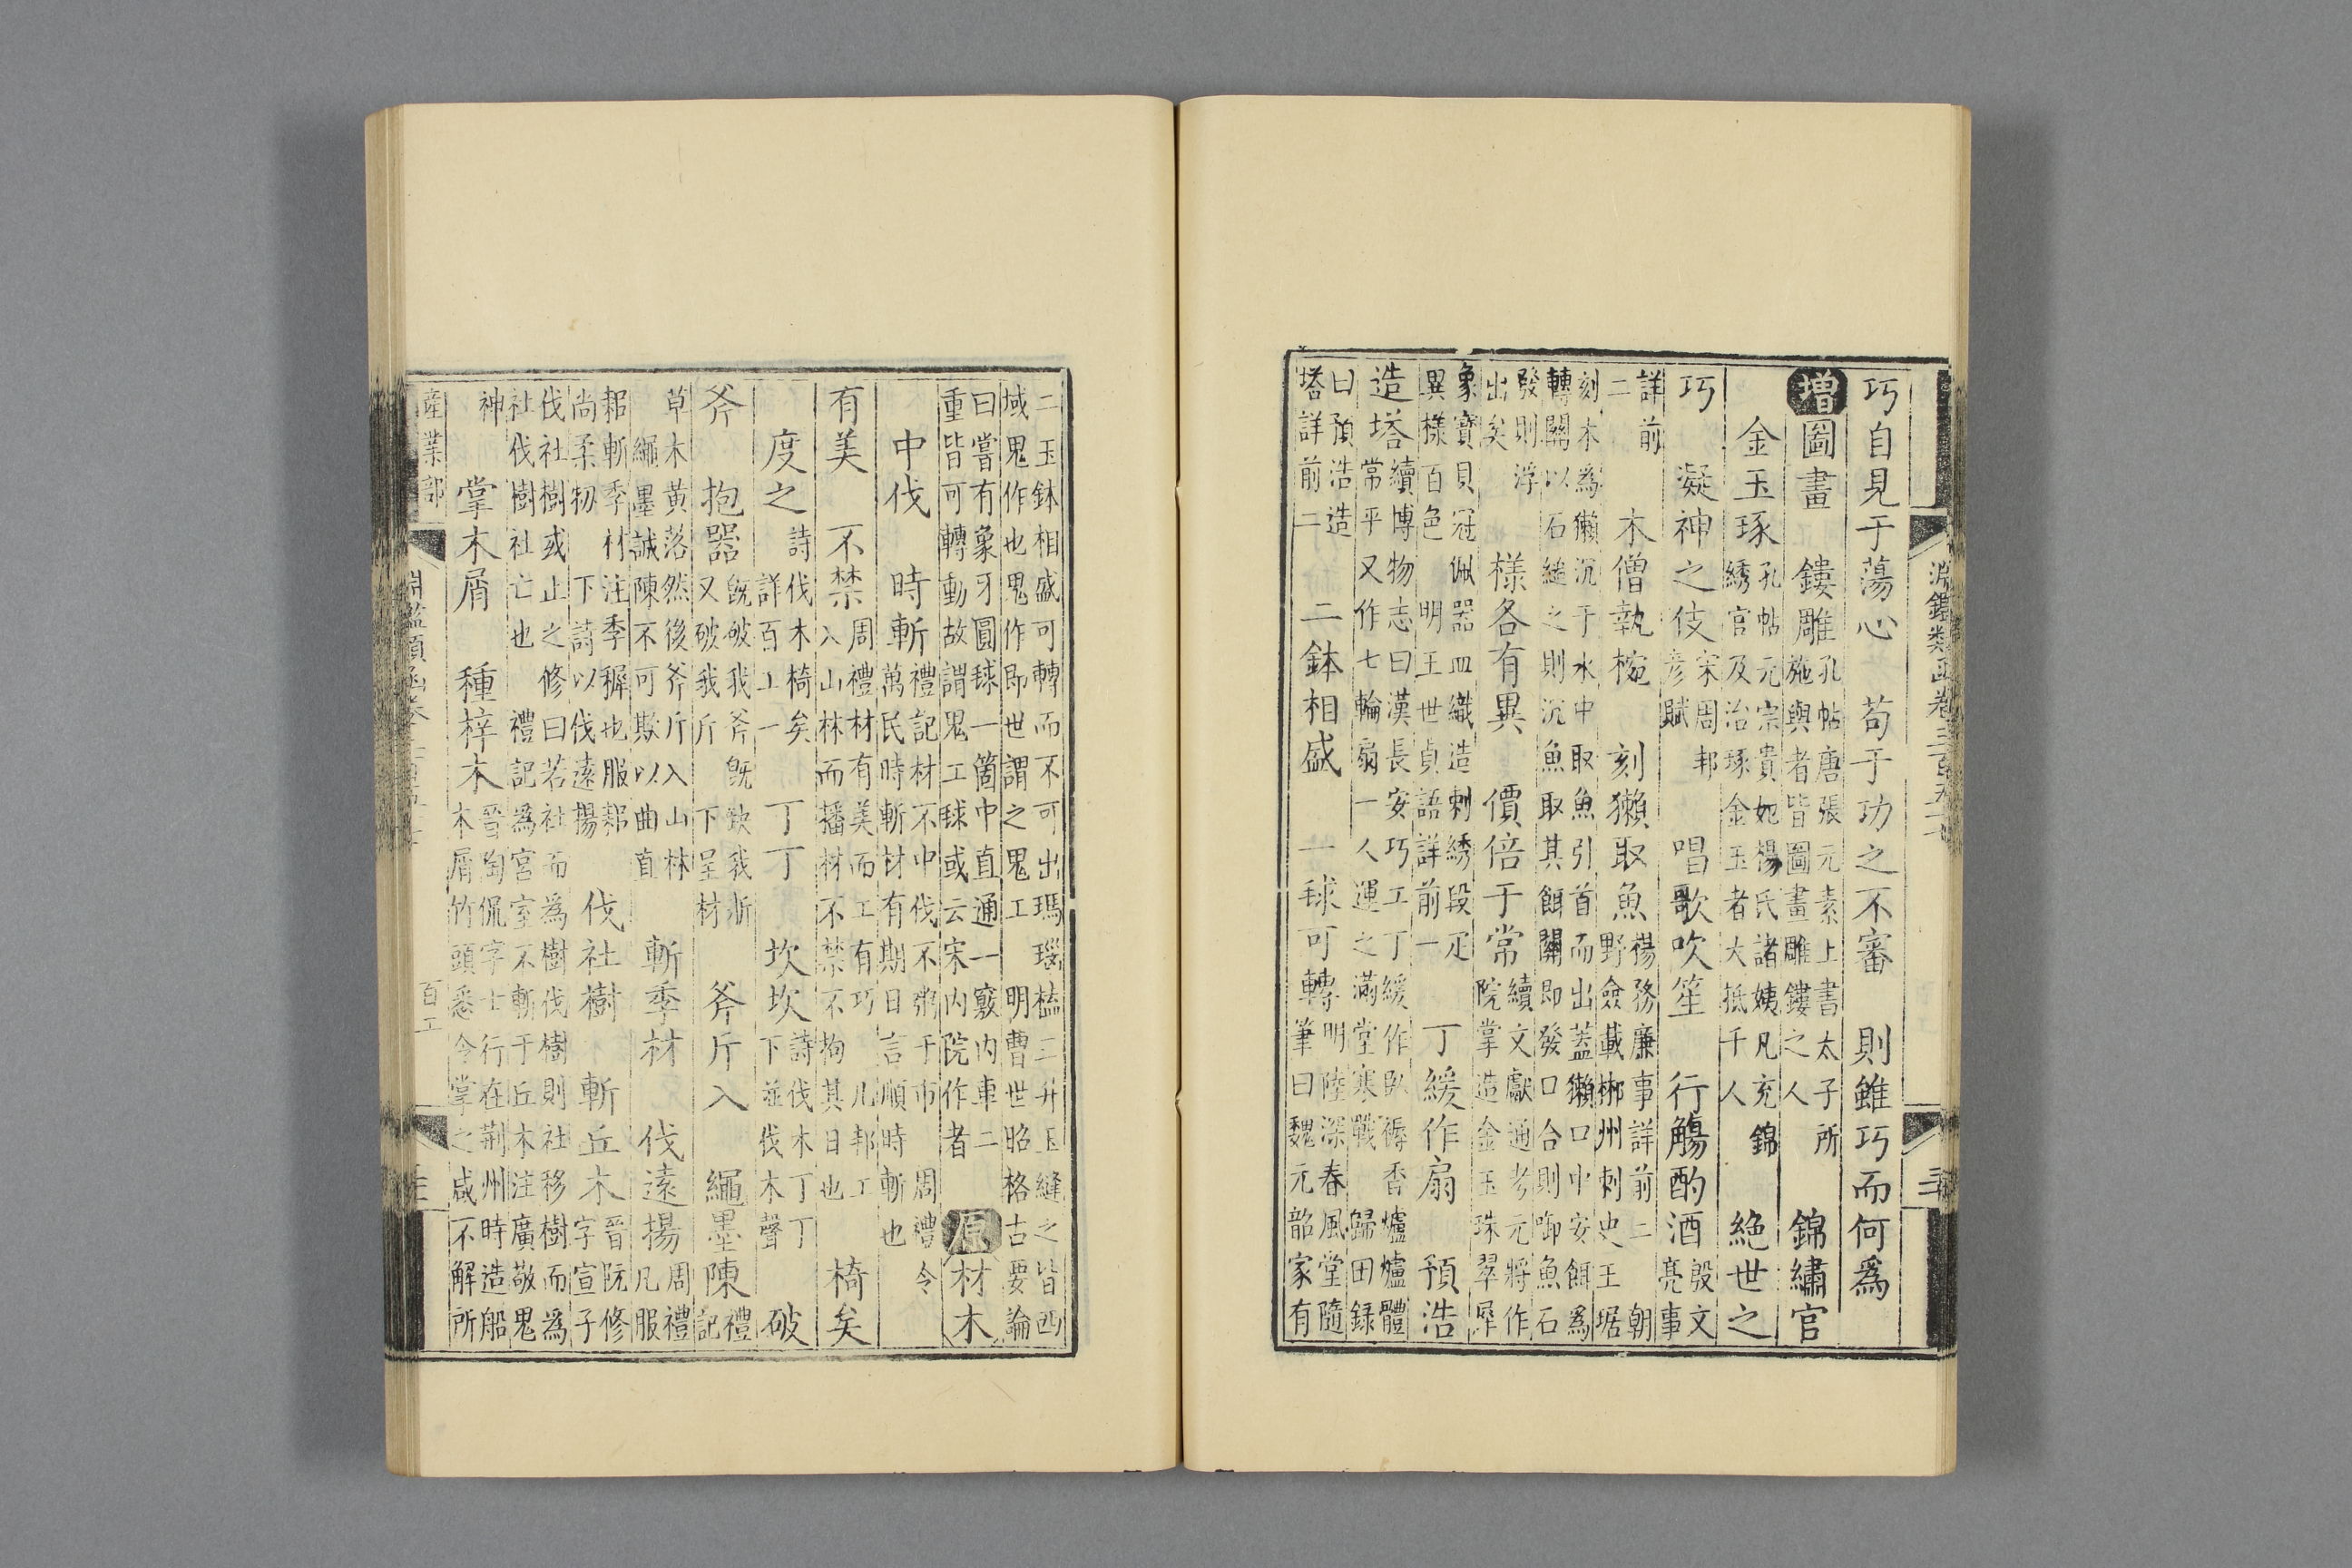 巧自見于蕩心　苟于功之不審　則雖巧而何爲
增圖畫　鏤雕孔帖唐張元素上書太子所施與者皆圖畫雕鏤之人　錦繡官
金玉琢孔帖元宗貴妃楊氏諸姨凡充錦綉官及治琢金玉者大抵千人　絶世之
巧　凝神之伎宋周邦彦賦　唱歌吹笙　行觴酌酒殷文亮事
詳前二　木僧執椀　刻獺取魚楊務廉事詳前二　朝野僉載郴州刺史王琚
刻木爲獺沉于水中取魚引首而出蓋獺口中安餌爲轉關以石縋之則沉魚取其餌關即發口合則啣魚石
發則浮出矣　樣各有異　價倍于常續文獻通考元將作院掌造金玉珠翠犀
象寶貝冠佩器皿織造刺綉段疋異樣百色　明王世貞語詳前一　丁緩作扇　預浩
造塔續博物志曰漢長安巧工丁緩作臥褥香爐爐體常平又作七輪扇一人運之滿堂寒戰　歸田録
曰預浩造塔詳前二　二鉢相盛　一毬可轉明陸深春風堂隨筆曰魏元韶家有
淵鑑類函卷三百五十七
二玉鉢相盛可轉而不可出瑪瑙榼三升玉縫之皆西域鬼作也鬼作即世謂之鬼工　明曹世昭格古要論
曰嘗有象牙圓毬一箇中直通一竅内車二重皆可轉動故謂鬼工毬或云宋内院作者　原材木
中伐　時斬禮記材不中伐不粥于市　周禮令萬民時斬材有期日言順時斬也
有美　不禁周禮材有美而工有巧　凡邦工入山林而掄材不禁不拘其日也　椅矣
度之詩伐木椅矣詳百工一　丁丁　坎坎詩伐木丁丁下並伐木聲　破
斧　抱器旣破我斧旣缺我斨又破我斤　下呈材　斧斤入　繩墨陳禮記
草木黃落然後斧斤入山林繩墨誠陳不可欺以曲直　斬季材　伐遠揚周禮凡服
耜斬季材注季穉也服耜尚柔物　下詩以伐遠揚　伐社樹　斬丘木晉阮修字宣子
伐社樹或止之修曰若社而爲樹伐樹則社移樹而爲社伐樹社亡也　禮記爲宮室不斬于丘木注廣敬鬼
神　掌木屑　種梓木晉陶侃字士行在荆州時造船木屑竹頭悉令掌之咸不解所
產業部
淵鑑類函卷三百五十七
百工